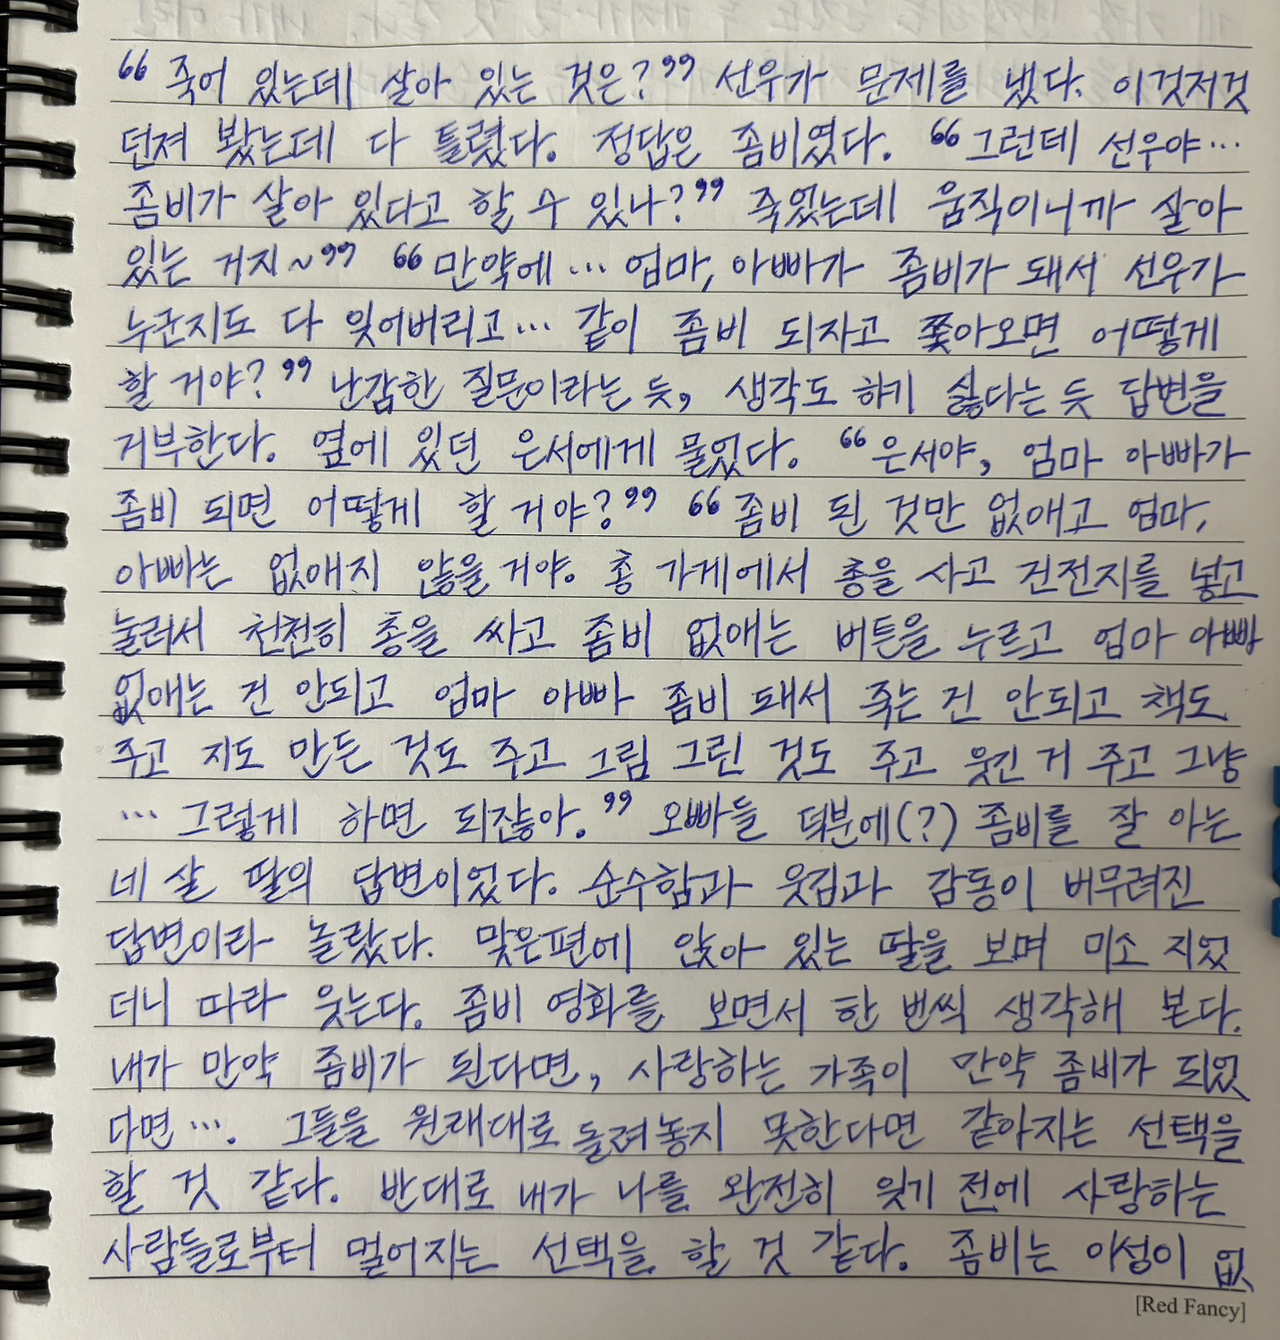 “죽어 있는데 살아 있는 것은?” 선우가 문제를 냈다. 이것저것
던져 봤는데 다 틀렸다. 정답은 좀비였다. “그런데 선우야…
좀비가 살아 있다고 할 수 있나?” 죽었는데 움직이니까 살아
있는 거지~” “만약에… 엄마, 아빠가 좀비가 돼서 선우가
누군지도 다 잊어버리고… 같이 좀비 되자고 쫓아오면 어떻게
할 거야?” 난감한 질문이라는 듯, 생각도 하기 싫다는 듯 답변을
거부한다. 옆에 있던 은서에게 물었다. “은서야, 엄마 아빠가
좀비 되면 어떻게 할 거야?” “좀비 된 것만 없애고 엄마,
아빠는 없애지 않을 거야. 총 가게에서 총을 사고 건전지를 넣고
눌러서 천천히 총을 싸고 좀비 없애는 버튼을 누르고 엄마 아빠
없애는 건 안되고 엄마 아빠 좀비 돼서 죽는 건 안되고 책도
주고 지도 만든 것도 주고 그림 그린 것도 주고 웃긴 거 주고 그냥
… 그렇게 하면 되잖아.” 오빠들 덕분에(?) 좀비를 잘 아는
네 살 딸의 답변이었다. 순수함과 웃김과 감동이 버무려진
답변이라 놀랐다. 맞은편에 앉아 있는 딸을 보며 미소 지었
더니 따라 웃는다. 좀비 영화를 보면서 한 번씩 생각해 본다.
내가 만약 좀비가 된다면, 사랑하는 가족이 만약 좀비가 되었
다면…. 그들을 원래대로 돌려놓지 못한다면 같아지는 선택을
할 것 같다. 반대로 내가 나를 완전히 잊기 전에 사랑하는
사람들로부터 멀어지는 선택을 할 것 같다. 좀비는 이성이 없
[Red Fancy]